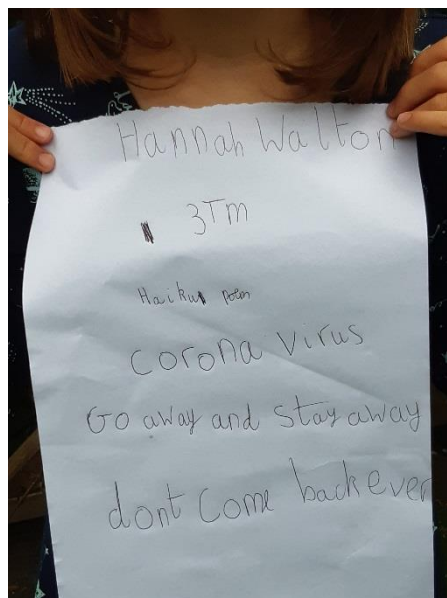 Hannah Walton
3Tm
Haiku poem
corona virus
Go away and stay away
dont come back ever